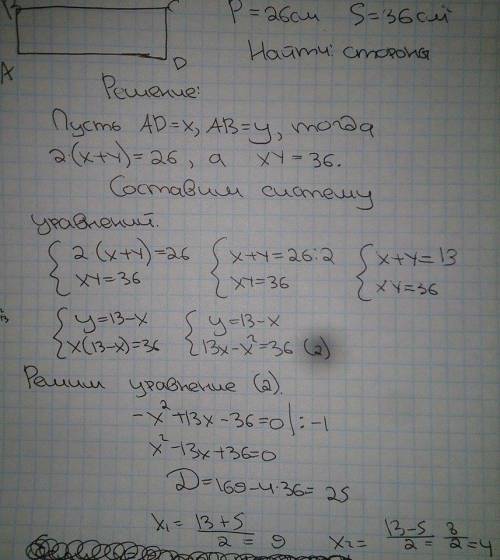 B C
P = 26см S = 36см²
Найти: стороны
A D
Решение:
Пусть AD=x, AB=y, тогда
2(x+y)=26, а xy=36.
Составим систему
уравнений.
{ 2(x+y)=26 { x+y=26:2 { x+y=13
{ xy=36 { xy=36 { xy=36
{ y=13-x { y=13-x
{ x(13-x)=36 { 13x-x²=36 (2)
Решим уравнение (2).
-x²+13x-36=0 |:-1
x²-13x+36=0
D=169-4·36= 25
x₁= (13+5)/2 = 9 x₂= (13-5)/2 = 8/2 =4